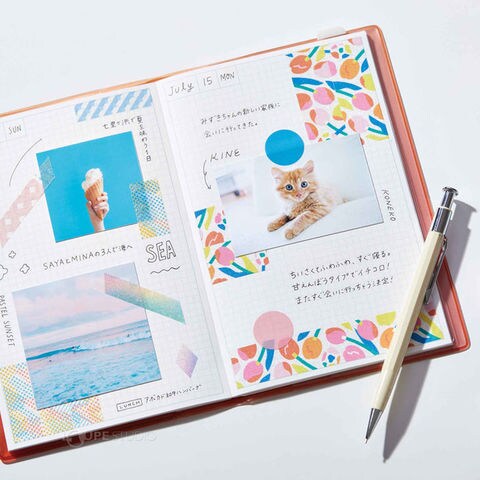 SUN
七里で浜で
夏を味わう1日
SAYAとMINAの3人で海へ
SEA
PASTEL SUNSET
LUNCH アボカドロコモハンバーグ
July 15 MON
みずきちゃんの新しい家族に
会いに行ってきた。
KINE
KONEKO
ちいさくてふわふわ、すぐ寝る。
甘えんぼうタイプでイチコロ!
またすぐ会いに行っちゃう決定!
JPE STUDIO